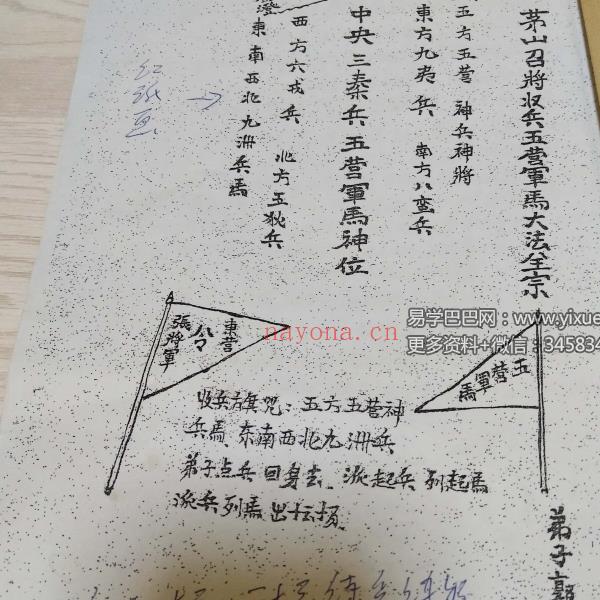 茅山召將收兵五营軍馬大法全宗
五方五营 神兵神將
東方九夷兵 南方八蛮兵
中央三秦兵五営軍馬神位
西方六戎兵 北方五狄兵
東南西北九洲兵馬
红纸画
張將軍
令
東营
五营軍馬
收兵旗咒：五方五营神
兵馬、东南西北九洲兵
弟子点兵回身去、派起兵列起馬
派兵列馬出坛场.
弟子
nayona.cn
易学巴巴网：www.yixue
更多资料+微信：345834